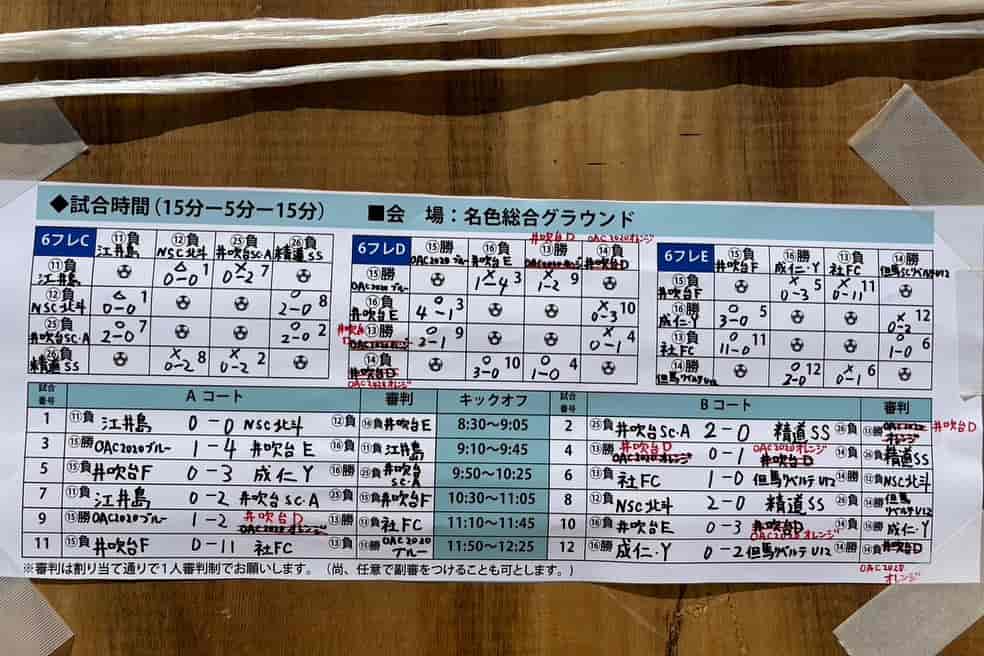 ◆試合時間（15分ー5分ー15分） ■会 場：名色総合グラウンド
井吹台D OAC2020オレンジ
6フレC ⑪負 江井島 ⑫負 NSC北斗 ㉕負 井吹台SC・A ㉖負 精道SS
⑪負 江井島 △ 0-0 1 × 0-2 7
⑫負 NSC北斗 △ 0-0 1 ○ 2-0 8
㉕負 井吹台SC・A ○ 2-0 7 ○ 2-0 2
㉖負 精道SS × 0-2 8 × 0-2 2
6フレD ⑮勝 OAC2020ブルー ⑯負 井吹台E ⑬勝 OAC2020オレンジ ⑭負 井吹台D
⑮勝 OAC2020ブルー × 1-4 3 × 1-2 9
⑯負 井吹台E ○ 4-1 3 × 0-3 10
井吹台D ⑬勝 OAC2020オレンジ ○ 2-1 9 × 0-1 4
⑭負 井吹台D ○ 3-0 10 ○ 1-0 4
OAC2020オレンジ
6フレE ⑮負 井吹台F ⑯勝 成仁・Y ⑬負 社FC ⑭勝 但馬SCリベルテU12
⑮負 井吹台F × 0-3 5 × 0-11 11
⑯勝 成仁・Y ○ 3-0 5 × 0-2 12
⑬負 社FC ○ 11-0 11 ○ 1-0 6
⑭勝 但馬リベルテU12 ○ 2-0 12 × 0-1 6
試合番号 Aコート 審判 キックオフ 試合番号 Bコート 審判
1 ⑪負 江井島 0-0 NSC北斗 ⑫負 ⑯負 井吹台E 8:30～9:05 2 ㉕負 井吹台SC・A 2-0 精道SS ㉖負 ⑬勝 OAC2020オレンジ 井吹台D
3 ⑮勝 OAC2020ブルー 1-4 井吹台E ⑯負 ⑪負 江井島 9:10～9:45 4 ⑬勝 井吹台D OAC2020オレンジ 0-1 OAC2020オレンジ 井吹台D ⑭負 ㉖負 精道SS
5 ⑮負 井吹台F 0-3 成仁Y ⑯勝 ㉕負 井吹台SC・A 9:50～10:25 6 ⑬負 社FC 1-0 但馬リベルテU12 ⑭勝 ⑫負 NSC北斗
7 ⑪負 江井島 0-2 井吹台SC・A ㉕負 ⑮負 井吹台F 10:30～11:05 8 ⑫負 NSC北斗 2-0 精道SS ㉖負 ⑭勝 但馬リベルテU12
9 ⑮勝 OAC2020ブルー 1-2 井吹台D OAC2020オレンジ ⑬勝 ⑬負 社FC 11:10～11:45 10 ⑯負 井吹台E 0-3 井吹台D OAC2020オレンジ ⑭負 ⑯勝 成仁・Y
11 ⑮負 井吹台F 0-11 社FC ⑬負 ⑮勝 OAC2020ブルー 11:50～12:25 12 ⑯勝 成仁・Y 0-2 但馬リベルテU12 ⑭勝 ⑭負 井吹台D
OAC2020オレンジ
※審判は割り当て通りで1人審判制でお願いします。（尚、任意で副審をつけることも可とします。）